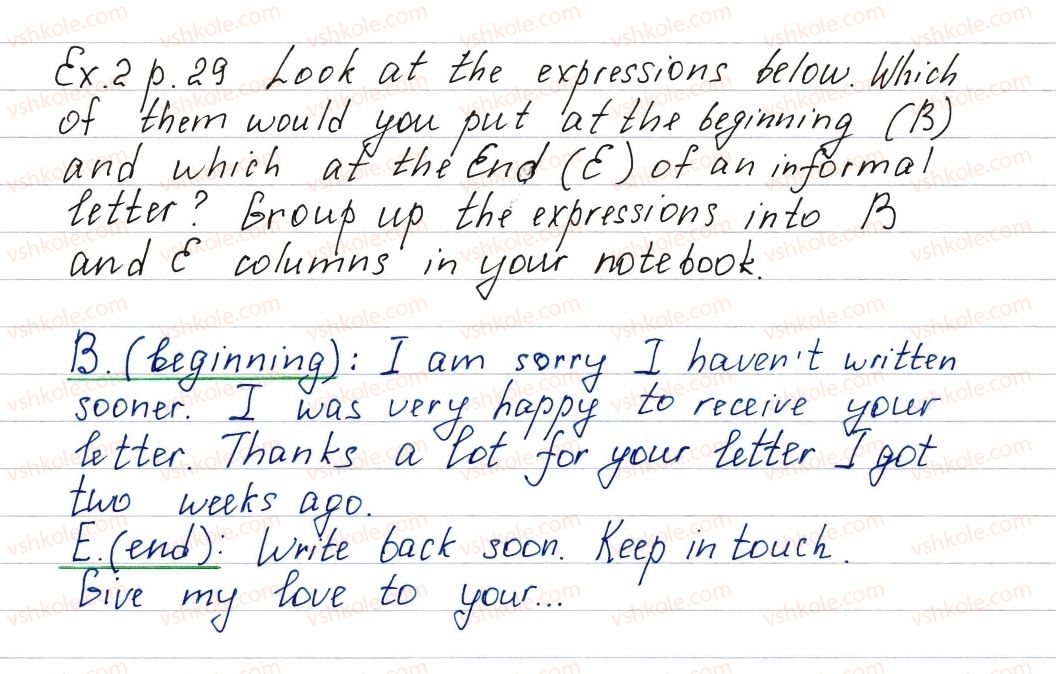 Ex.2 p.29 Look at the expressions below. Which
of them would you put at the beginning (B)
and which at the End (E) of an informal
letter? Group up the expressions into B
and E columns in your notebook.
B. (beginning): I am sorry I haven't written
sooner. I was very happy to receive your
letter. Thanks a lot for your letter I got
two weeks ago.
E. (end): Write back soon. Keep in touch.
Give my love to your...